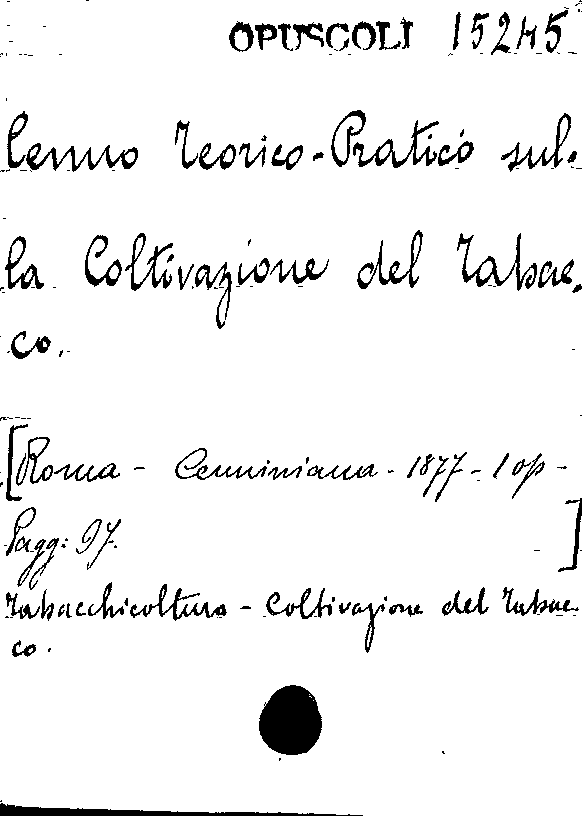 OPUSCOLI 15245
Cenno Teorico-Pratico sul-
la Coltivazione del Tabac-
co.
[Roma - Cenniniana - 1877 - 1 op -
Pagg: 97. - ]
Tabacchicoltura - Coltivazione del Tabac-
co.